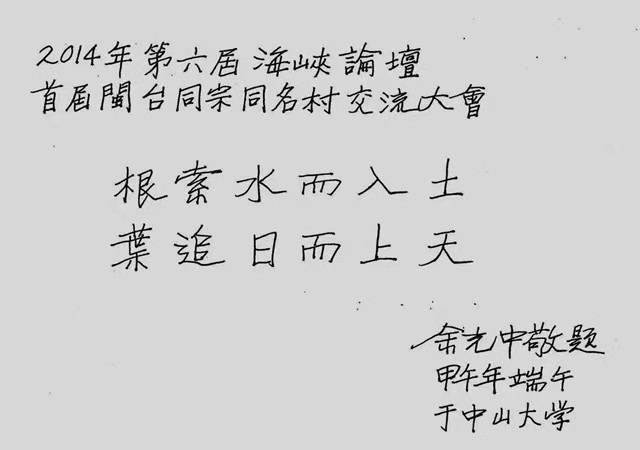 2014年第六屆海峽論壇
首屆閩台同宗同名村交流大會
根索水而入土
葉追日而上天
余光中敬题
甲午年端午
于中山大学